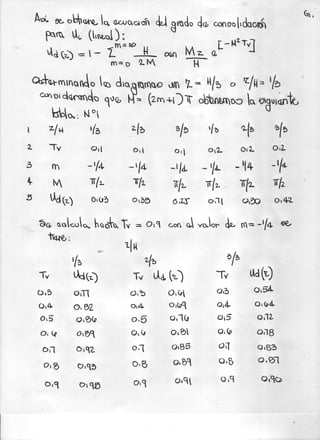 Así se obtiene la ecuación del grado de consolidación
para U₀ (lineal):
Ud(z) = 1 - Σ m=∞ m=0 H/2M sen Mz/H e [-M²Tv]
determinando los diagramas en Z = H/3 o z/H = 1/3
considerando que M = (2m+1)π obtenemos la siguiente
tabla: N°1
1 z/H 1/3 2/3 3/3 1/3 2/3 3/3
2 Tv 0,1 0,1 0,1 0,2 0,2 0,2
3 m -1/4 -1/4 -1/4 -1/4 -1/4 -1/4
4 M π/2 π/2 π/2 π/2 π/2 π/2
5 Ud(z) 0,63 0,35 0,71 0,42
Se calcula hasta Tv = 0,9 con el valor de m = -1/4 se
tiene:
z/H
1/3 2/3 3/3
Tv Ud(z) Tv Ud(z) Tv Ud(z)
0,3 0,77 0,3 0,61 0,3 0,54
0,4 0,82 0,4 0,69 0,4 0,64
0,5 0,86 0,5 0,76 0,5 0,72
0,6 0,89 0,6 0,81 0,6 0,78
0,7 0,92 0,7 0,85 0,7 0,83
0,8 0,93 0,8 0,89 0,8 0,87
0,9 0,95 0,9 0,91 0,9 0,90